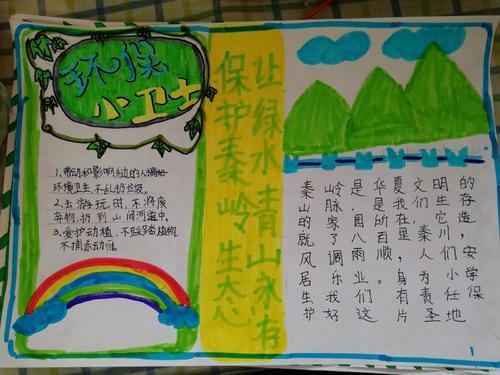 环保
小卫士
1.带动和影响身边的人搞好
环境卫生,不乱扔垃圾。
2.去游玩时,不将废
弃物,扔到山间河道中。
3.爱护动植,不踩踏植物
不捕杀动物
保护秦岭生态
让绿水青山永存
秦岭是华夏文明的
山脉,是我们生存
的家园所在,它造
就了八百里秦川,
风调雨顺,人们安
居乐业。身为小学
生我们有责任保
护好这片圣地
1